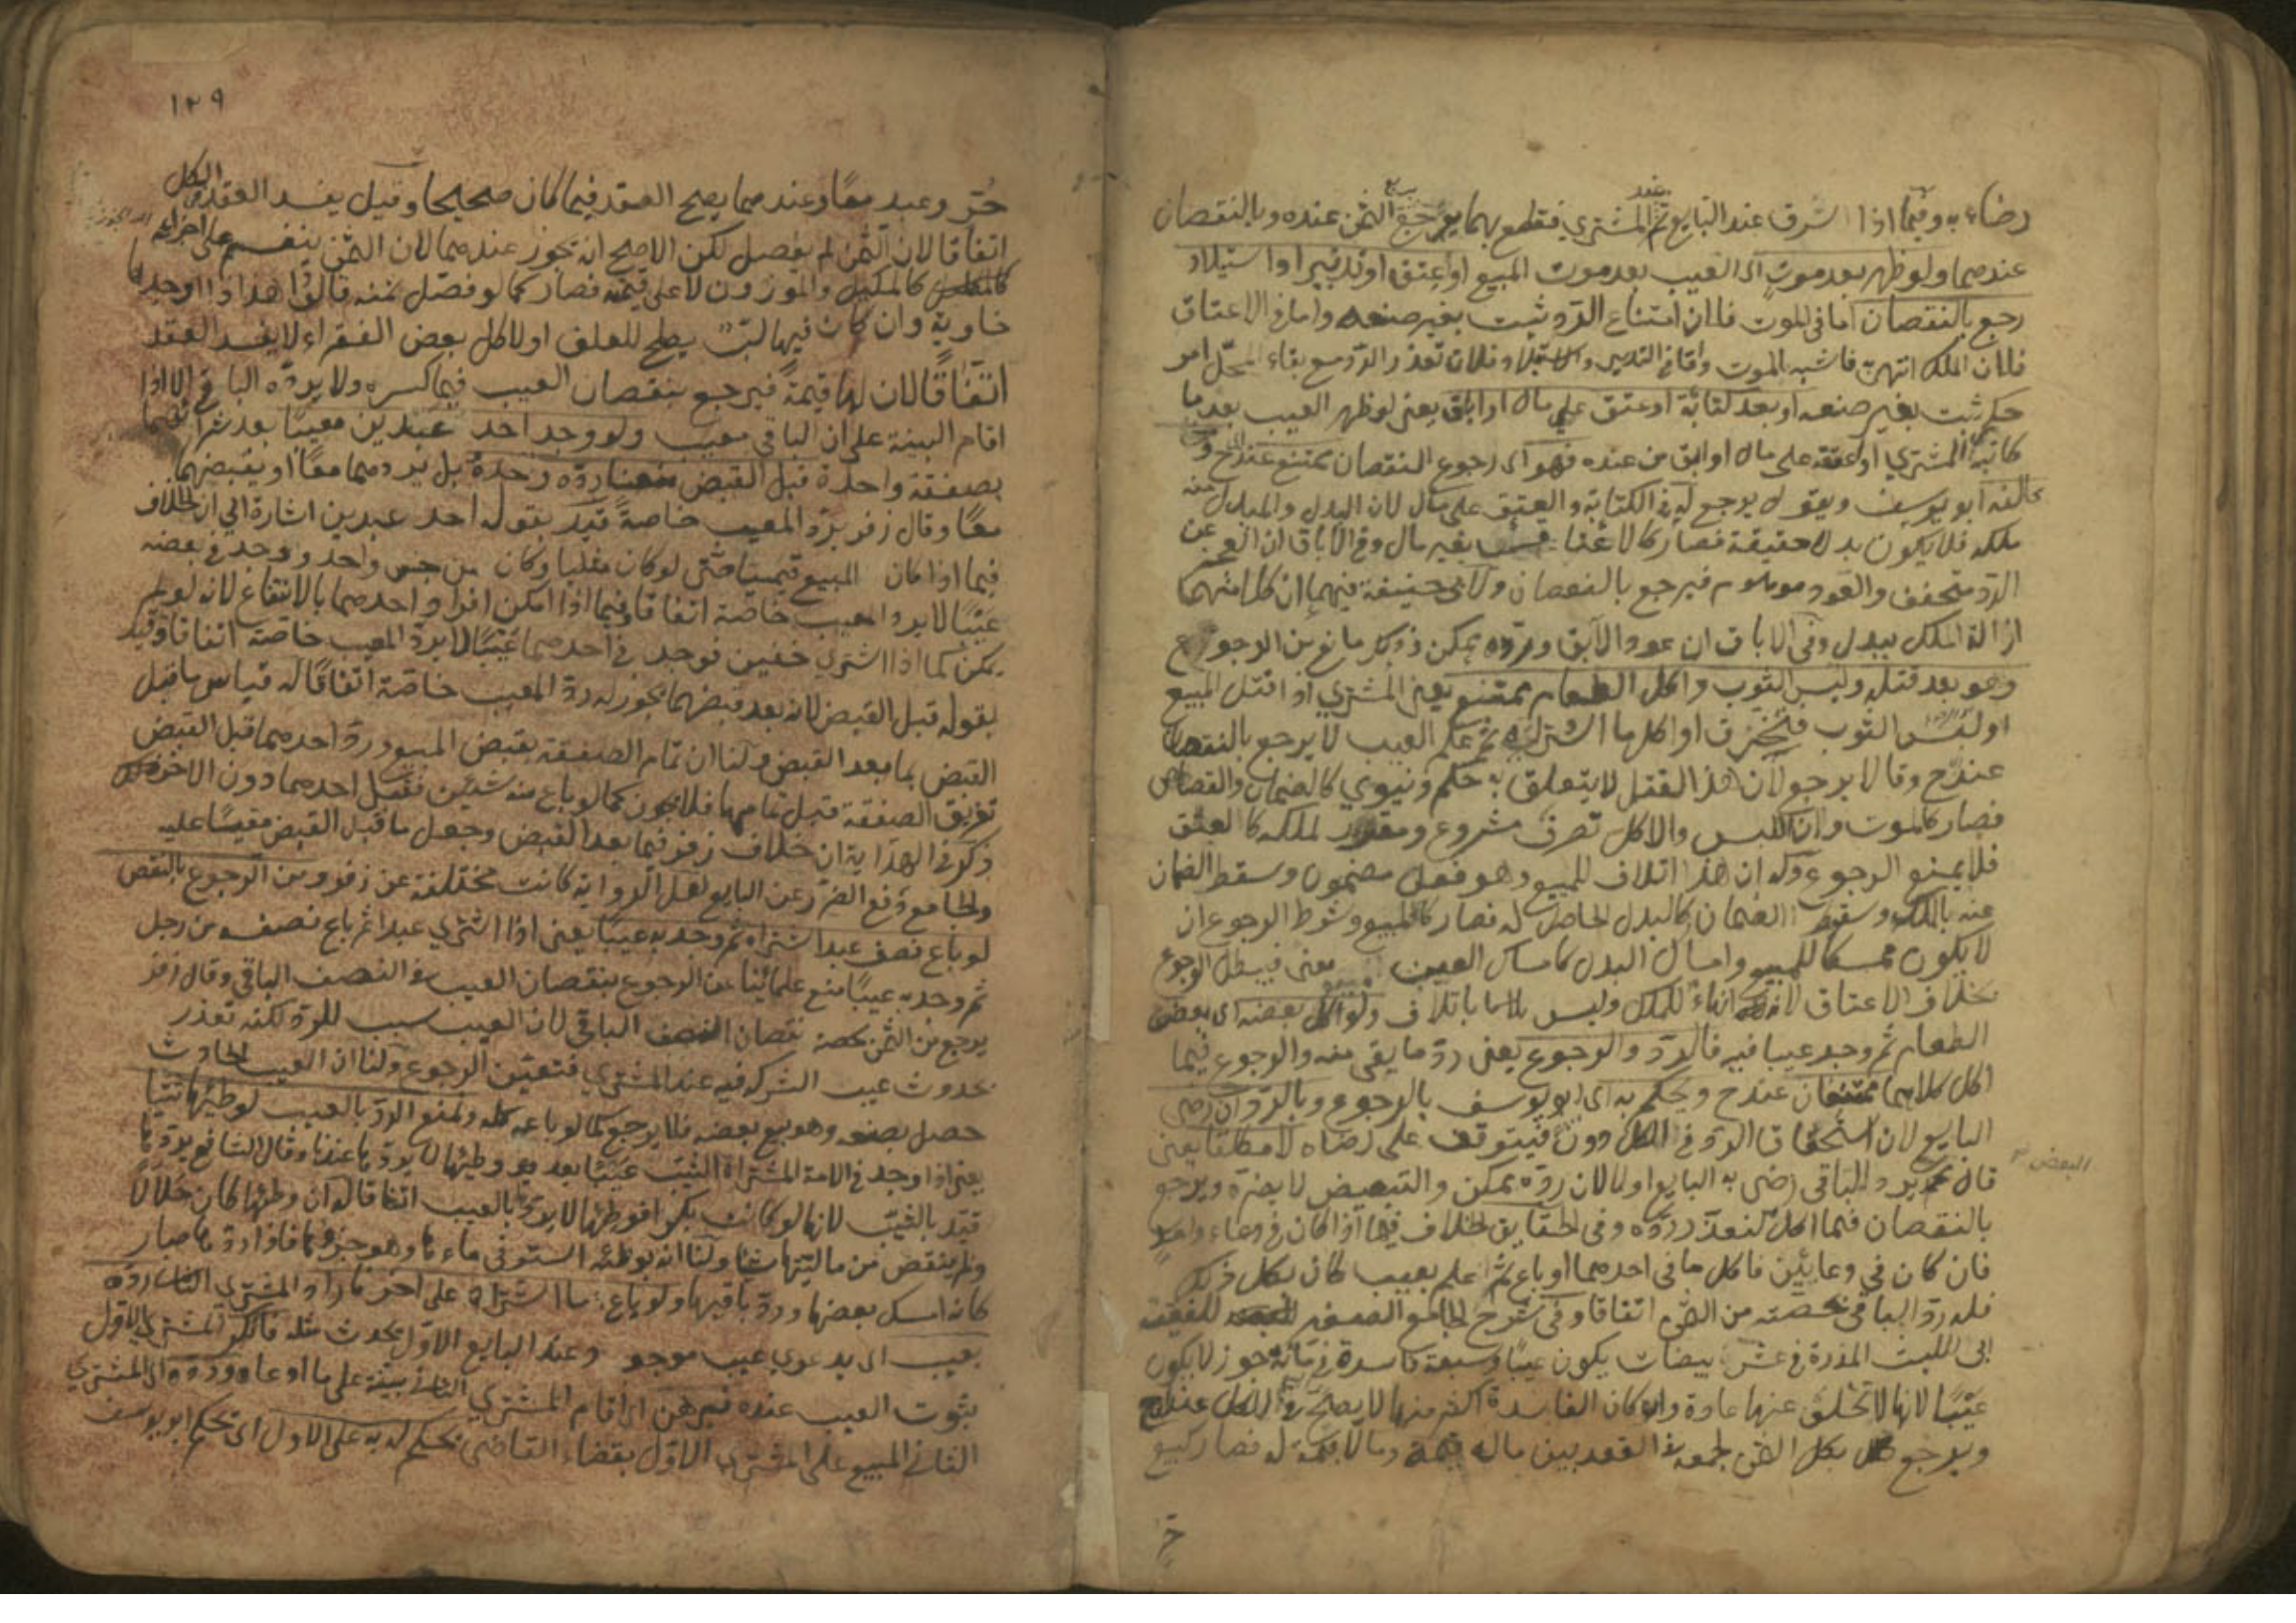 رضاء به وفيما اذا سرق عند البايع ثم عند المشتري فقطع بهما يرجع الثمن عنده وبالنقصان
عندهما ولو ظهر بعد موت اى العيب بعد موت المبيع او اعتق او تدبير او استيلاد
رجع بالنقصان اما في الموت فلان امتناع الرد ثبت بغير صنعه واما في الاعتاق
فلان الملك انتهى فاشبه الموت واما في التدبير والاستيلاد فلان تعذر الرد مع بقاء المحل امر
حكمي ثبت بغير صنعه او بعد كتابة او عتق على مال او اباق يعنى لو ظهر العيب بعد ما
كاتبه المشتري او اعتقه على مال او ابق من عنده فهو اى رجوع النقصان ممتنع عند ح
خالفه ابو يوسف ويقول يرجع له في الكتابة والعتق على مال لان البدل والمبدل
ملكه فلا يكون بدلا حقيقة فصار كالاعتاق بغير مال وفي الاباق ان العجز عن
الرد متحقق والعود موهوم فيرجع بالنقصان ولابى حنيفة فيهما ان كلا منهما
ازالة الملك ببدل وفى الاباق ان عود الآبق ورده ممكن وذلك مانع من الرجوع
وهو بعد قتله ولبس الثوب واكل الطعام ممتنع يعنى المشتري اذا قتل المبيع
او لبس الثوب فتخرق او اكل ما اشتراه ثم علم العيب لا يرجع بالنقصان
عند ح وقالا يرجع لان هذا القتل لا يتعلق به حكم دنيوي كالضمان والقصاص
فصار كالموت وان اللبس والاكل تصرف مشروع ومقرر لملكه كالعتق
فلا يمنع الرجوع وله ان هذا اتلاف للمبيع وهو فعل مضمون وسقط الضمان
عنه بالملك وسقوط الضمان كالبدل الحاصل له فصار كالمبيع وشرط الرجوع ان
لا يكون ممسكا للمبيع وامساك البدل كامساك العين معنى فيبطل الرجوع
بخلاف الاعتاق لانه انهاء للملك وليس باتلاف ولو اكل بعضه اى بعض
الطعام ثم وجد عيبا فيه فالرد والرجوع يعنى رد ما بقى منه والرجوع فيما
اكل كلاهما ممتنعان عند ح ويحكم به اى ابو يوسف بالرجوع وبالرد ان رضى
البايع لان استحقاق الرد في الكل دون البعض فيتوقف على رضاه لا مطلقا يعنى
قال محمد يرد الباقى رضى به البايع او لا لان رده ممكن والتبعيض لا يضره ويرجع
بالنقصان فيما اكل لتعذر رده وفى الحقايق الخلاف فيما اذا كان في وعاء واحد
فان كان في وعائين فاكل ما فى احدهما او باع ثم علم بعيب كان بكل ذلك
فله رد الباقى بحصته من الثمن اتفاقا وفى شرح الجامع الصغير للفقيه
ابى الليث المذرة في عشر بيضات يكون عيبا وسبعة فاسدة في مائة جوز لا يكون
عيبا لانها لا تخلو عنها عادة ولو كان الفاسدة اكثر منها لا يصح في الكل عند ح
ويرجع بكل الثمن لجمعه في العقد بين ماله قيمة وما لا قيمة له فصار كبيع
١٢٩
حر وعبد معا وعندهما يصح العقد فيما كان صحيحا وقيل يفسد العقد في الكل
اتفاقا لان الثمن لم يفصل لكن الاصح انه يجوز عندهما لان الثمن ينقسم على اجزائه
كالمكيل والموزون لا على قيمته فصار كما لو فصل ثمنه قالوا هذا اذا وجدها
خاوية وان كان فيها لب يصلح للعلف او لاكل بعض الفقراء لا يفسد العقد
اتفاقا لان لها قيمة فيرجع بنقصان العيب فيما كسره ولا يرده الباقى الا اذا
اقام البينة على ان الباقي معيب ولو وجد احد عبدين معيبا بعد شرائهما
بصفقة واحدة قبل القبض منعنا رده وحده بل يردهما معا او يقبضهما
معا وقال زفر يرد المعيب خاصة قيد بقوله احد عبدين اشارة الى ان الخلاف
فيما اذا كان المبيع قيميا حتى لو كان مثليا وكان من جنس واحد ووجد في بعضه
عيبا لا يرد المعيب خاصة اتفاقا وفيما اذا امكن افراد احدهما بالانتفاع لانه لو لم
يمكن كما اذا اشترى خفين فوجد في احدهما عيبا لا يرد المعيب خاصة اتفاقا وقيد
بقوله قبل القبض لانه بعد قبضهما يجوز له رد المعيب خاصة اتفاقا له قياس ما قبل
القبض بما بعد القبض ولنا ان تمام الصفقة بقبض المبيع ورد احدهما قبل القبض
تفريق الصفقة قبل تمامها فلا يجوز كما لو باع منه شيئين فقبل احدهما دون الآخر
ذكر في الهداية ان خلاف زفر فيما بعد القبض وجعل ما قبل القبض مقيسا عليه
والجامع دفع الضرر عن البايع لعل الرواية كانت مختلفة عن زفر ومن الرجوع بالنقص
لو باع نصف عبد اشتراه ثم وجد به عيبا يعنى اذا اشترى عبدا ثم باع نصفه من رجل
ثم وجد به عيبا منع علمائنا عن الرجوع بنقصان العيب في النصف الباقي وقال زفر
يرجع من الثمن بحصة نقصان النصف الباقى لان العيب سبب للرد لكنه تعذر
بحدوث عيب الشركة فيه عند المشتري فتعين الرجوع ولنا ان العيب الحادث
حصل بصنعه وهو بيع بعضه فلا يرجع كما لو باعه كله ونمنع الرد بالعيب لو طئها ثيبا
يعنى اذا وجد في الامة المشتراة الثيب عيبا بعد وطئها لا يردها عندنا وقال الشافعى يردها
قيد بالثيب لانها لو كانت بكرا فوطئها لا يردها بالعيب اتفاقا له ان وطئها كان حلالا
ولم ينقص من ماليتها شيئا ولنا انه بوطئه استوفى ماءها وهو جزؤها فاذا ردها صار
كانه امسك بعضها ورد باقيها ولو باع ما اشتراه على آخر فاراد المشترى الثانى رده
بعيب اى بدعوى عيب موجود وعند البايع الاول يحدث مثله فانكر المشترى الاول
ثبوت العيب عنده فبرهن اى اقام المشترى الثانى بينة على ما ادعاه ورده اى المشتري
الثانى المبيع على المشترى الاول بقضاء القاضى نحكم له به على الاول اى يحكم ابو يوسف